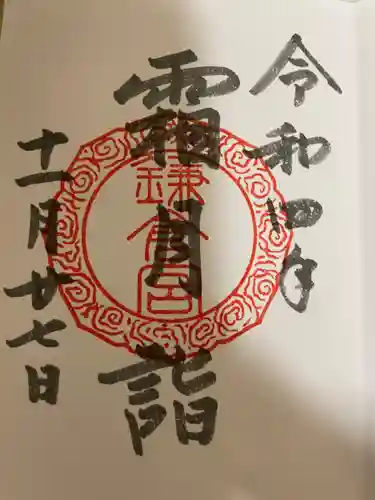 令和四年
霜月詣
十一月廿七日
鎌倉宮